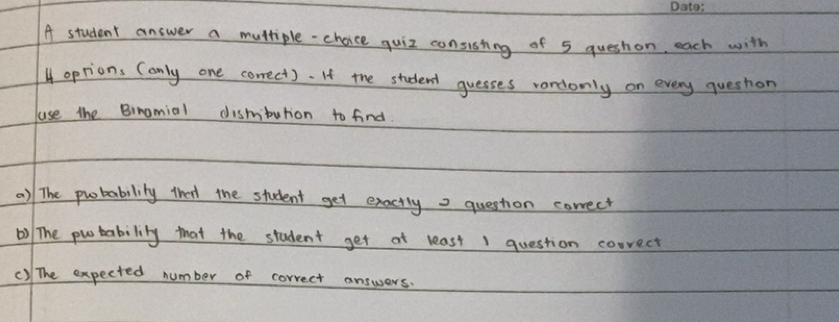 Date:
A student answer a multiple-choice quiz consisting of 5 question, each with
4 options (only one correct). If the student guesses randomly on every question
use the Binomial distribution to find.
a) The probability that the student get exactly 2 question correct
b) The probability that the student get at least 1 question correct
c) The expected number of correct answers.